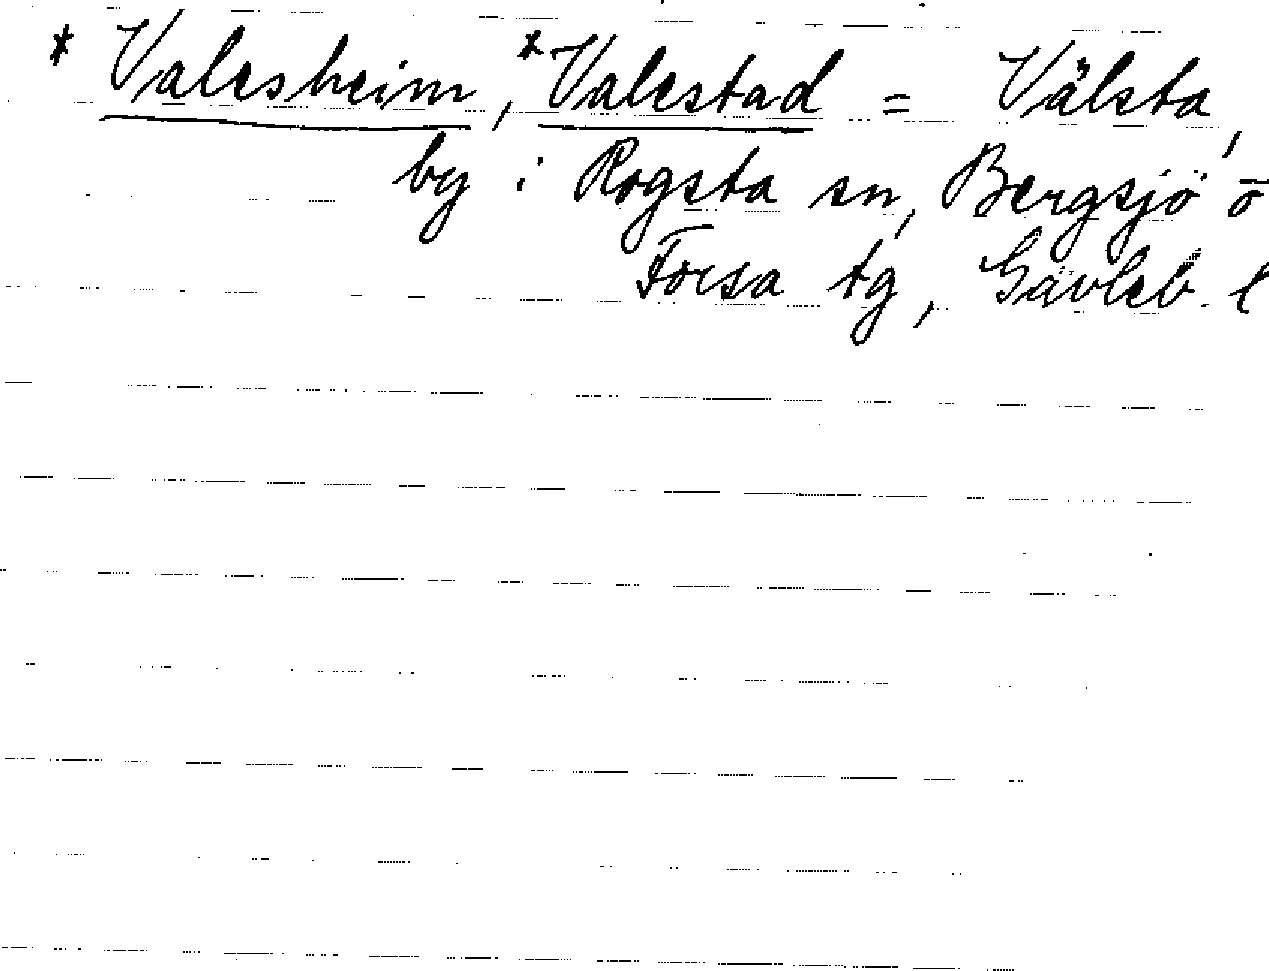 * Valesheim, *Valestad = Välsta,
by i Rogsta sn, Bergsjö o
Forsa tg, Gävleb. l